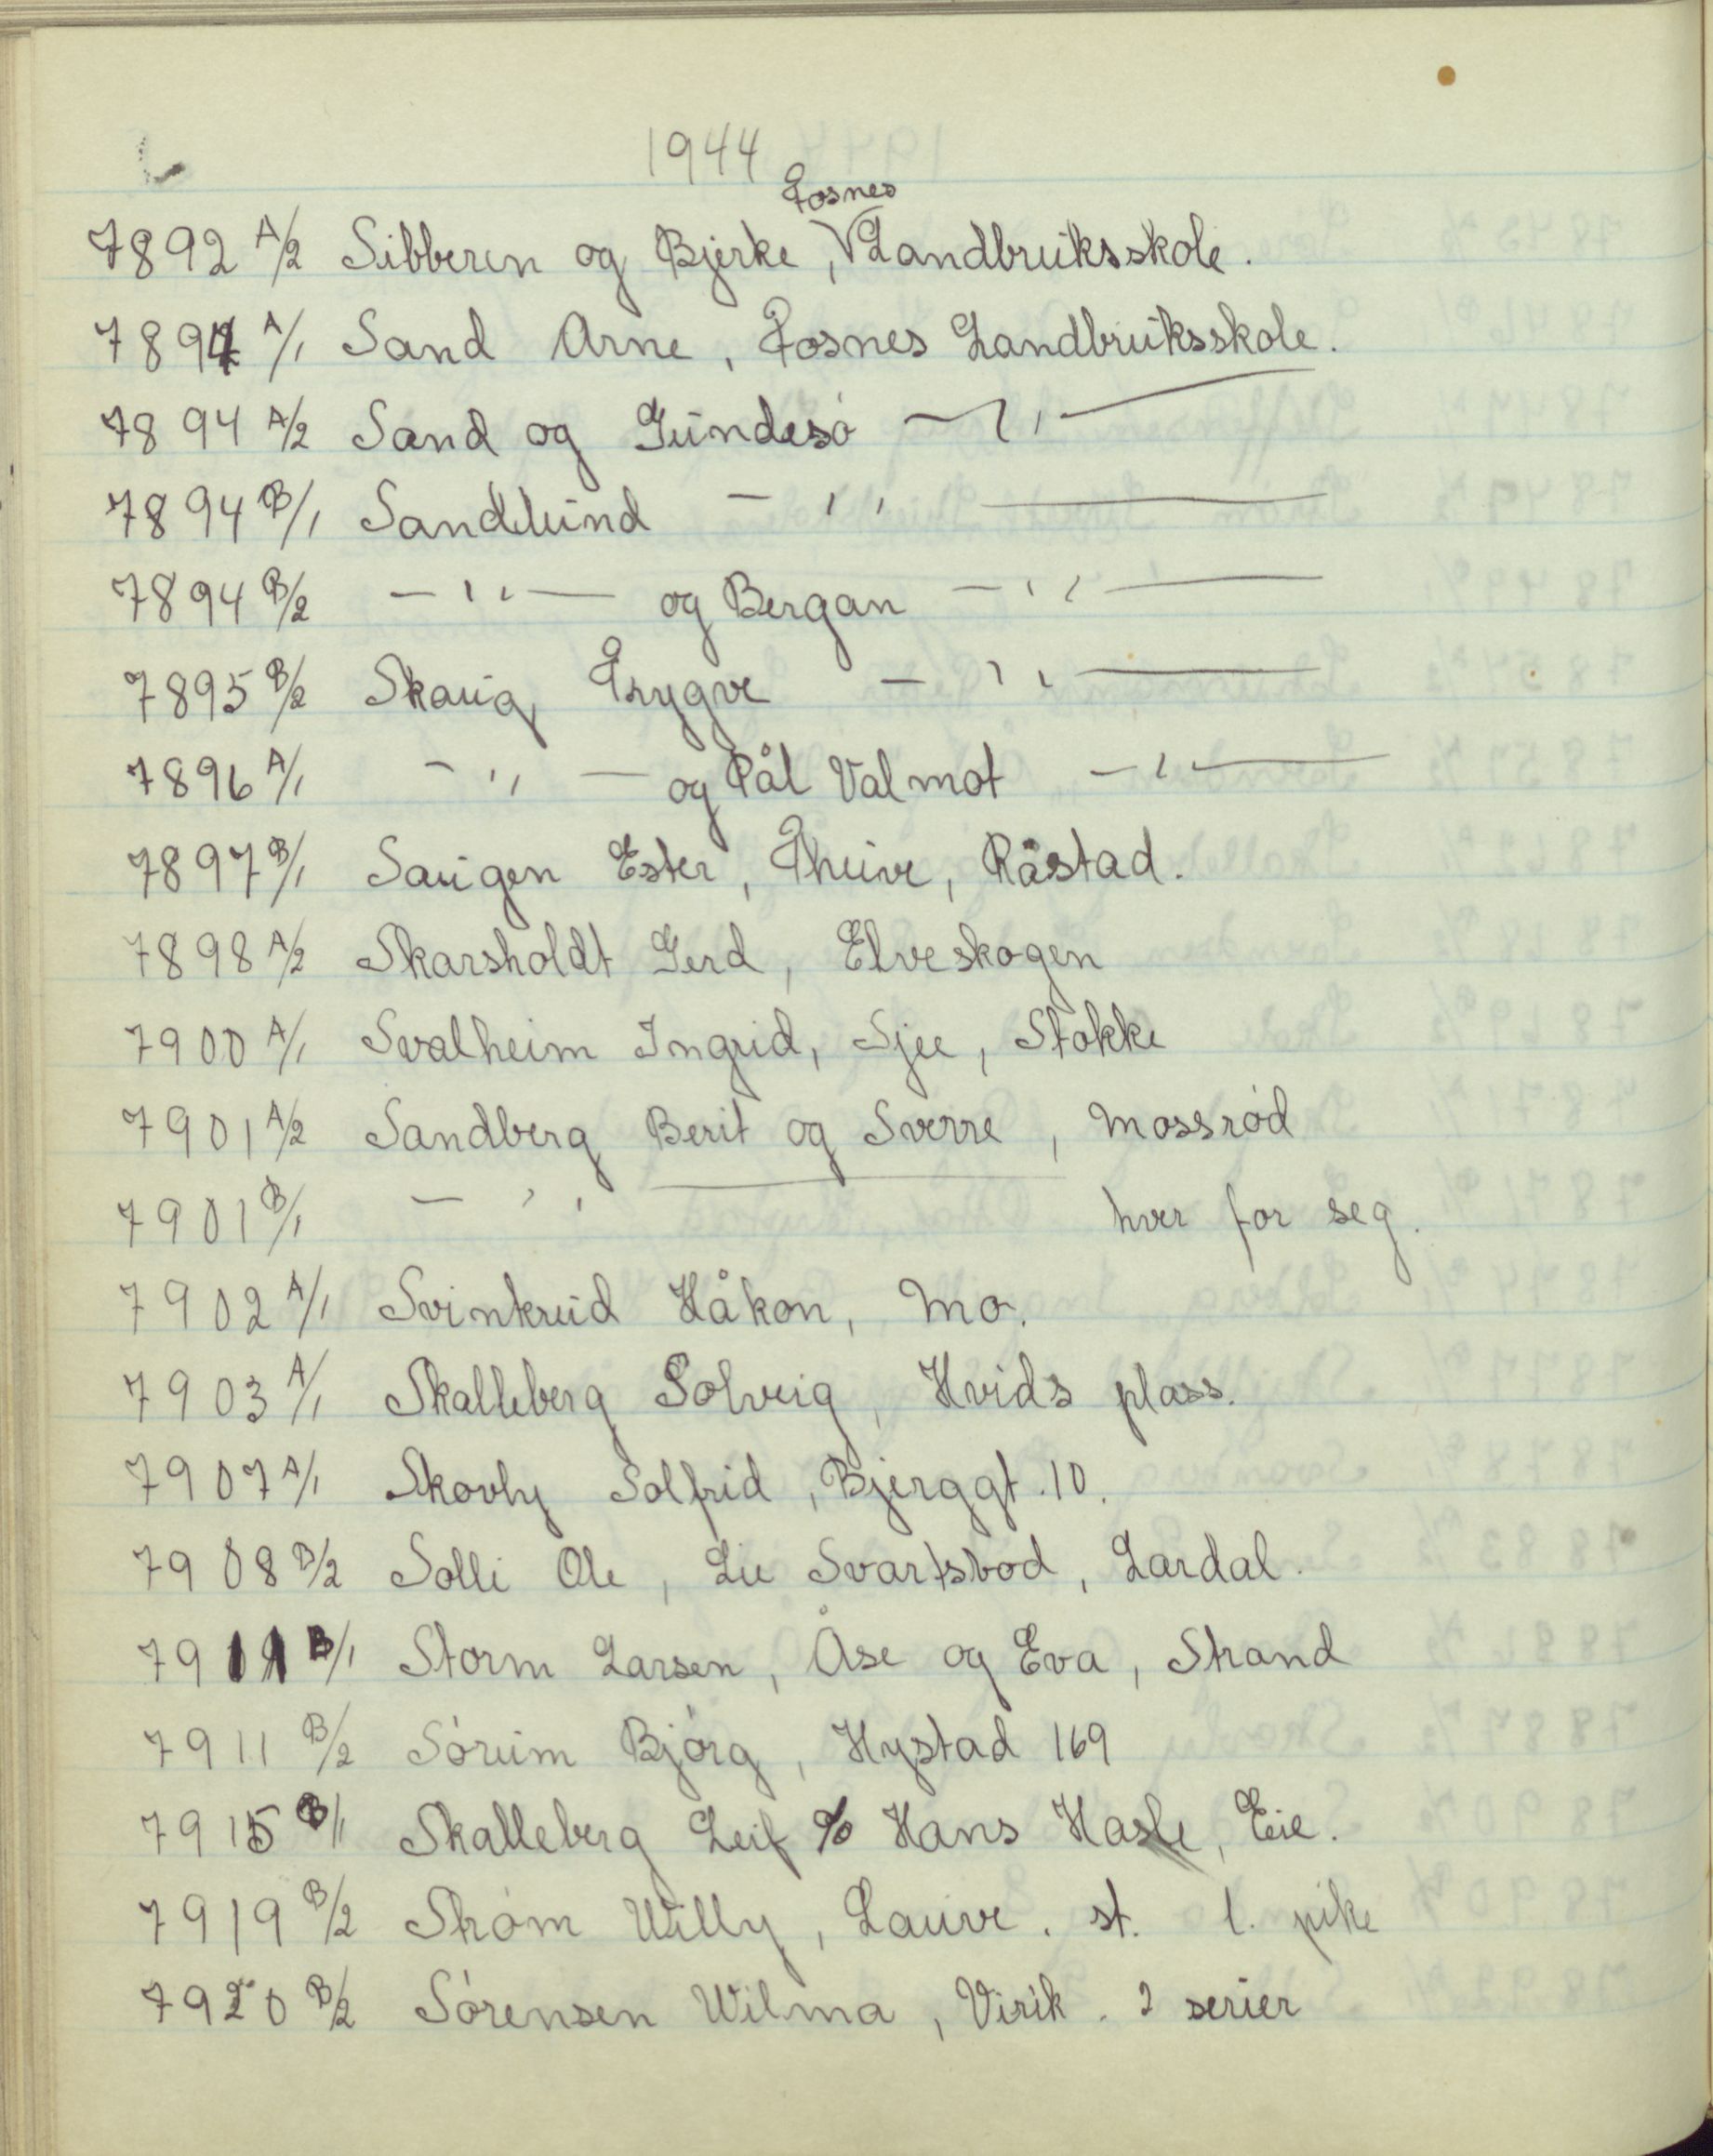 1944
Fosnes
7892 A/2 Sibberen og Bjerke, V Landbruksskole.
7894 A/1 Sand Arne, Fosnes Landbruksskole.
7894 A/2 Sand og Gundesø — " —
7894 B/1 Sandlund — " —
7894 B/2 — " — og Bergan — " —
7895 B/2 Skaug Trygve — " —
7896 A/1 — " — og Pål Valmot — " —
7897 B/1 Saugen Ester, Thuve, Råstad.
7898 A/2 Skarsholdt Gerd, Elveskogen
7900 A/1 Svalheim Ingrid, Sjee, Stokke
7901 A/2 Sandberg Berit og Sverre, Mossrød
7901 B/1 — " — hver for seg.
7902 A/1 Svinkrud Håkon, Mo.
7903 A/1 Skalleberg Solveig, Hvids plass.
7907 A/1 Skovly Solfrid, Bjerggt. 10.
7908 B/2 Solli Ole, Lie Svartsbod, Lardal.
7911 B/1 Storm Larsen, Åse og Eva, Strand
7911 B/2 Sørum Bjørg, Hystad 169
7915 B/1 Skalleberg Leif % Hans Hasle, Eie.
7919 B/2 Strøm Willy, Lauve. st. l. pike
7920 B/2 Sørensen Wilma, Virik. 2 serier